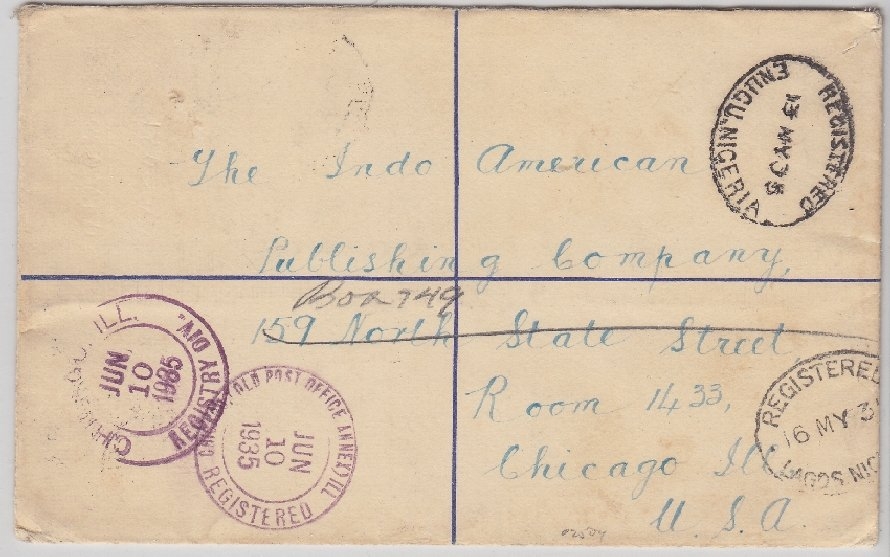 The Indo American
Publishing Company,
Box 749
159 North State Street
Room 1433,
Chicago Ill
U. S. A.
REGISTERED
ENUGU. NIGERIA
13 MY 35
REGISTERED
16 MY 3
LAGOS NIG
CHICAGO, ILL.
REGISTRY DIV.
JUN
10
1935
OLD POST OFFICE ANNEX) ILL
REGISTERED
JUN
10
1935